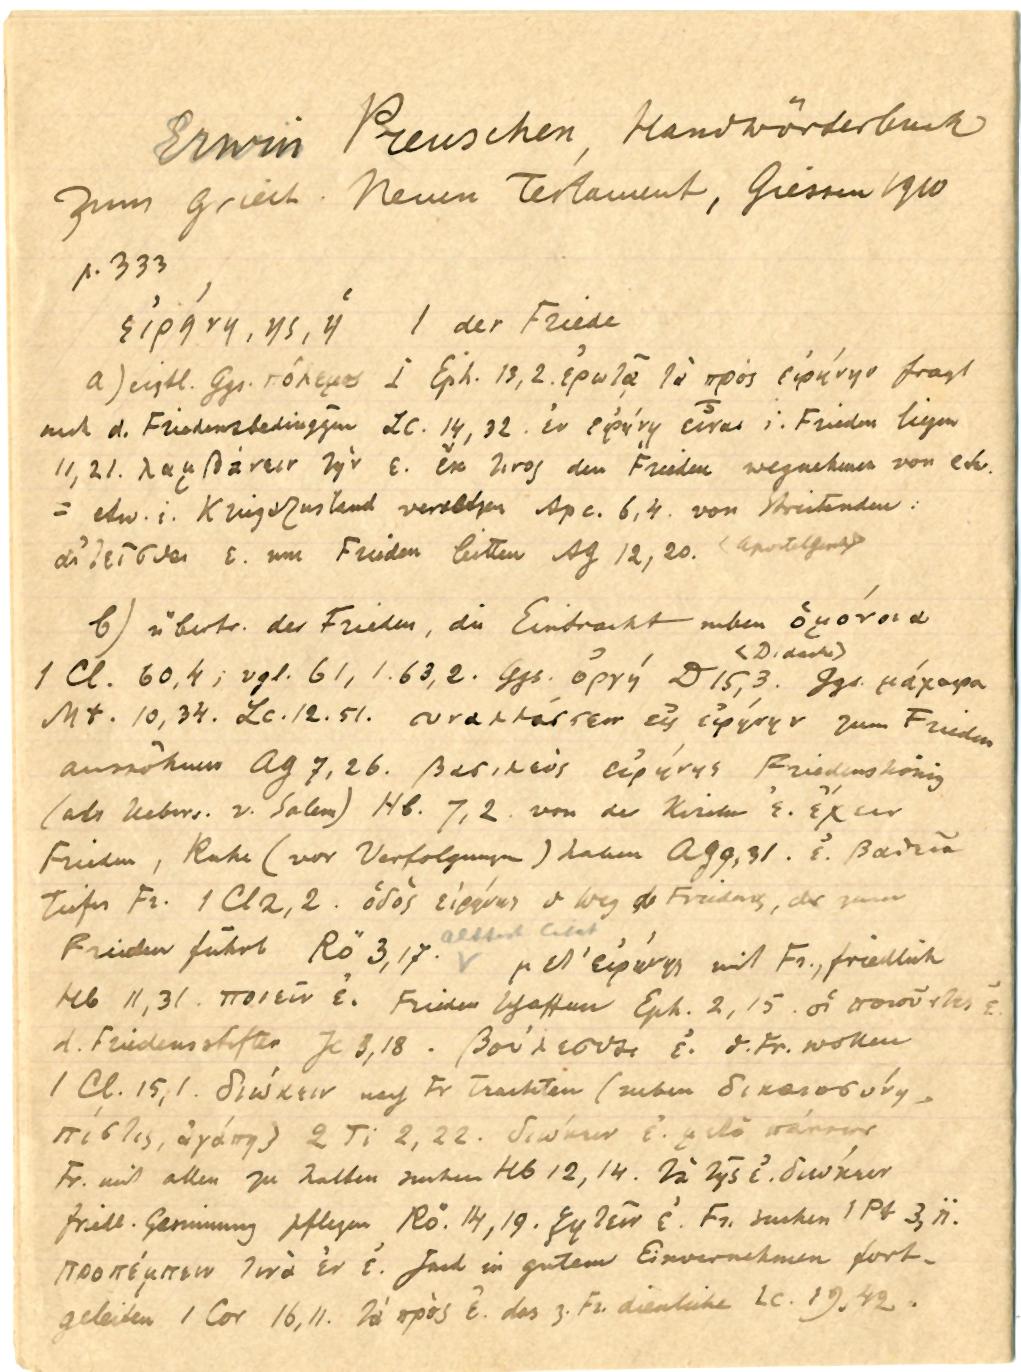 Erwin Preuschen, Handwörterbuch
zum griech. Neuen Testament, Giessen 1910
p. 333
εἰρήνη, ης, ἡ 1 der Friede
a) eigtl. Ggs. πόλεμος I Eph. 13,2. ἐρωτᾷ τὰ πρὸς εἰρήνην fragt
nach d. Friedensbedinggen Lc. 14,32. ἐν εἰρήνῃ εἶναι i. Frieden liegen
11,21. λαμβάνειν τὴν ε. ἔκ τινος den Frieden wegnehmen von etw.
= etw. i. Kriegszustand versetzen Apc. 6,4. von Streitenden:
αἰτεῖσθαι ε. um Frieden bitten AG 12,20. <Apostelgesch>
b) übertr. der Frieden, die Eintracht neben ὁμόνοια
<Didache>
1 Cl. 60,4; vgl. 61,1. 63,2. Ggs. ὀργή D 15,3. Ggs. μάχαιρα
Mt. 10,34. Lc. 12.51. συναλλάσσειν εἰς εἰρήνην zum Frieden
aussöhnen AG 7,26. βασιλεὺς εἰρήνης Friedenskönig
(als Uebers. v. Salem) Hb. 7,2 von der Kirche ἐ. ἔχειν
Frieden, Ruhe (vor Verfolgungen) haben AG 9,31. ἐ. βαθεῖα
tiefer Fr. 1 Cl 2,2. ὁδὸς εἰρήνης d Weg ds Friedens, der zum
Frieden führt Rö 3,17. μετ' εἰρήνης mit Fr., friedlich
Hb 11,31. ποιεῖν ἐ. Frieden schaffen Eph. 2,15. οἱ ποιοῦντες ἐ.
d. Friedensstifter Jc 3,18. βούλεσθαι ἐ. d. Fr. wollen
1 Cl. 15,1. διώκειν nach Fr trachten (neben δικαιοσύνη,
πίστις, ἀγάπη) 2 Ti 2,22. διώκειν ἐ. μετὰ πάντων
Fr. mit allen zu halten suchen Hb 12,14. τὰ τῆς ἐ. διώκειν
friedl. Gesinnung pflegen Rö. 14,19. ζητεῖν ἐ. Fr. suchen 1 Pt 3,11.
προπέμπειν τινὰ ἐν ἐ. Jmd in gutem Einvernehmen fort-
geleiten 1 Cor 16,11. τὰ πρὸς ἐ. das z. Fr. dienliche Lc. 19,42.